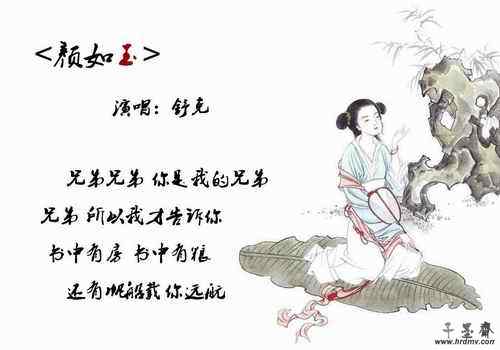 <颜如玉>
演唱：舒克
兄弟兄弟 你是我的兄弟
兄弟 所以我才告诉你
书中有房 书中有粮
还有帆船载你远航
千墨斋
www.hrdmv.com